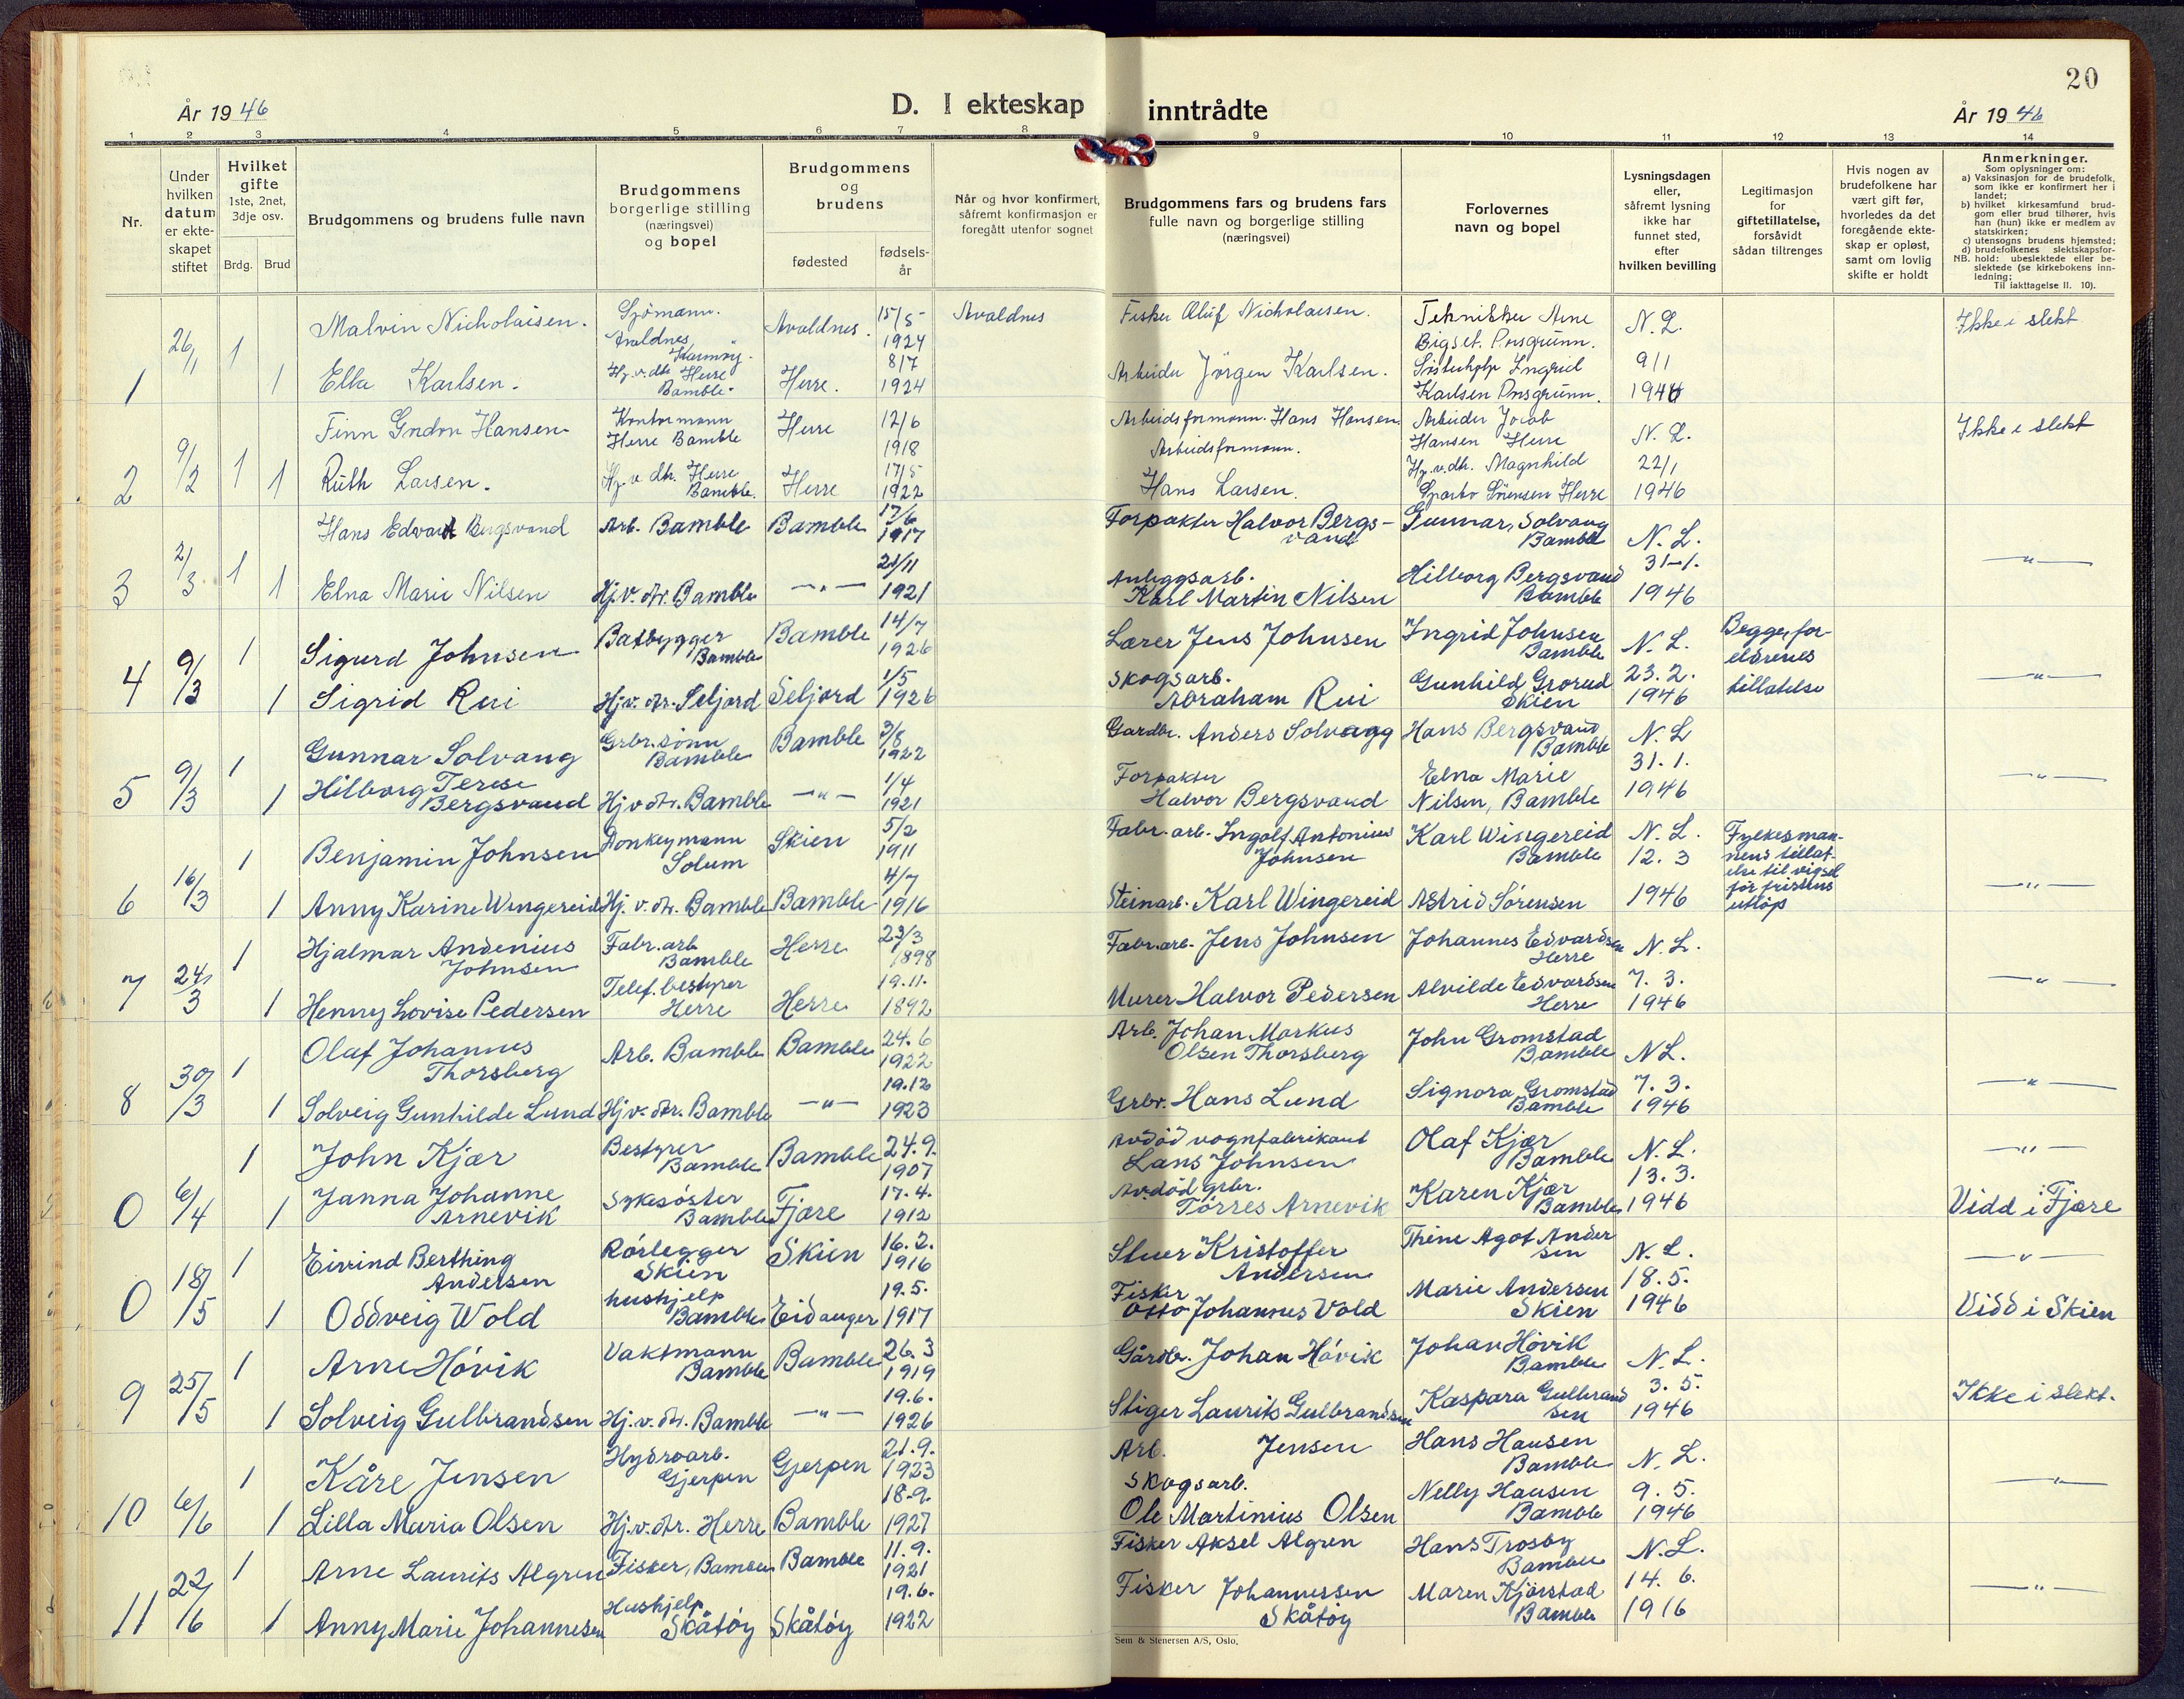 20
År 1946
D. I ekteskap inntrådte
År 1946
1 2 3 4 5 6 7 8 9 10 11 12 13 14
Nr.
Under hvilken datum er ekteskapet stiftet
Hvilket gifte 1ste, 2net, 3dje osv.
Brdg. Brud
Brudgommens og brudens fulle navn
Brudgommens borgerlige stilling (næringsvei) og bopel
Brudgommens og brudens
fødested
fødsels-år
Når og hvor konfirmert, såfremt konfirmasjon er foregått utenfor sognet
Brudgommens fars og brudens fars fulle navn og borgerlige stilling (næringsvei)
Forlovernes navn og bopel
Lysningsdagen eller, såfremt lysning ikke har funnet sted, efter hvilken bevilling
Legitimasjon for giftetillatelse, forsåvidt sådan tiltrenges
Hvis nogen av brudefolkene har vært gift før, hvorledes da det foregående ekteskap er opløst, samt om lovlig skifte er holdt
Anmerkninger.
Som oplysninger om:
a) Vaksinasjon for de brudefolk, som ikke er konfirmert her i landet;
b) hvilket kirkesamfund brudgom eller brud tilhører, hvis han (hun) ikke er medlem av statskirken;
c) utensogns brudens hjemsted;
d) brudefolkenes slektskapsforhold: ubeslektede eller beslektede (se kirkebokens innledning;
NB. Til iakttagelse II. 10).
1 26/1 1 Malvin Nicholaisen. Sjömann. Avaldnes, Karmøy. Avaldnes. 15/5 1924 Avaldnes Fisker Oluf Nicholaisen. Tekniker Arne Bigset. Porsgrunn. N. L. Ikke i slekt
1 Ella Karlsen. Hj.v.dtr Herre Bamble. Herre. 8/7 1924 Arbeider Jörgen Karlsen. Ingrid Karlsen Porsgrunn. 9/1 1946
2 9/2 1 Finn Gndor Hansen Kontormann Herre Bamble Herre 12/6 1918 Arbeidsformann. Hans Hansen. Arbeider Jacob Hansen Herre N. L. Ikke i slekt
1 Ruth Larsen. Hj.v. dtr. Herre Bamble. Herre 17/5 1922 Arbeidsformann. Hans Larsen. Hj.v.dtr. Magnhild Sørensen Herre 22/1 1946
3 2/3 1 Hans Edvart Bergsvand Arb. Bamble Bamble 17/6 1917 Forpakter Halvor Bergsvand Gunnar Solvang Bamble N. L. —"—
1 Elna Marie Nilsen Hj.v. dtr. Bamble —"— 21/11 1921 Anleggsarb. Karl Martin Nilsen Hilborg Bergsvand Bamble 31-1. 1946
4 9/3 1 Sigurd Johnsen Båtbygger Bamble Bamble 14/7 1926 Lærer Jens Johnsen Ingrid Johnsen Bamble N. L. Begges foreldrenes tillatelse —"—
1 Sigrid Rui Hj.v. dtr. Seljord Seljord 1/5 1926 Skogsarb. Abraham Rui Gunhild Grorud Skien 23. 2. 1946
5 9/3 1 Gunnar Solvang Grbr. sönn Bamble Bamble 3/8 1922 Gardbr. Anders Solvagg Hans Bergsvand Bamble N. L —"—
1 Hilborg Terese Bergsvand Hj v dtr. Bamble —"— 1/4 1921 Forpakter Halvor Bergsvand Elna Marie Nilsen, Bamble 31. 1. 1946
6 16/3 1 Benjamin Johnsen Donkeymann Solum Skien 5/2 1911 Fabr. arb. Ingolf Antonius Johnsen Karl Wingereid Bamble N. L. Fylkesmannens tillatelse til vigsel för fristens utlöp —"—
1 Anny Karine Wingereid Hj. v. dtr. Bamble Bamble 4/7 1916 Steinarb. Karl Wingereid Astrid Sörensen 12. 3 1946
7 24/3 1 Hjalmar Andenius Johnsen Fabr. arb Bamble Herre 23/3 1898 Fabr. arb. Jens Johnsen Johannes Edvardsen Herre N. L. —"—
1 Henny Lovise Pedersen Telef. bestyrer Herre Herre 19.11. 1892 Murer Halvor Pedersen Alvilde Edvardsen Herre 7. 3. 1946
8 30/3 1 Olaf Johannes Thorsberg Arb. Bamble Bamble 24. 6 1922 Arb. Johan Markus Olsen Thorsberg John Gromstad Bamble N L. —"—
1 Solveig Gunhilde Lund Hj v. dtr. Bamble —"— 19.12 1923 Grbr. Hans Lund Signora Gromstad Bamble 7. 3. 1946
0 6/4 1 John Kjær Bestyrer Bamble Bamble 24.9. 1907 Avdöd vognfabrikant Lans Johnsen Olaf Kjær Bamble N. L. —"—
1 Janna Johanne Arnevik Sykesöster Bamble Fjære 17.4. 1912 Avdöd grbr. Törres Arnevik Karen Kjær Bamble 13. 3. 1946 Vidd i Fjære
0 18/5 1 Eivind Berthing Andersen Rörlegger Skien Skien 16. 2. 1916 Stuer Kristoffer Andersen Thine Agot Andersen N. L. —"—
1 Oddveig Wold hushjelp Bamble Eidanger 19.5. 1917 Fisker Otto Johannes Vold Marie Andersen Skien 18. 5. 1946 Vidd i Skien
9 25/5 1 Arne Hövik Vaktmann Bamble Bamble 26. 3 1919 Gårdbr. Johan Hövik Johan Hövik Bamble N. L. Ikke i slekt.
1 Solveig Gulbrandsen Hj. v. dtr. Bamble —"— 19.6. 1926 Stiger Laurits Gulbrandsen Kaspara Gulbrandsen 3. 5. 1946
10 6/6 1 Kåre Jensen Hydroarb. Gjerpen Gjerpen 21.9. 1923 Arb. Jensen Hans Hansen Bamble N. L. —"—
1 Lilla Maria Olsen Hj.v.dtr. Herre Bamble 18.9. 1927 Skogsarb. Ole Martinius Olsen Nelly Hansen Bamble 9. 5. 1946
11 22/6 1 Arne Laurits Algren Fisker, Bamble Bamble 11.9. 1921 Fisker Aksel Algren Hans Trosby Bamble N. L. —"—
1 Anny Marie Johannesen Hushjelp Skåtöy Skåtöy 19.6. 1922 Fisker Johannessen Skåtöy Maren Kjörstad Bamble 14. 6. 1916
Sem & Stenersen A/S, Oslo.